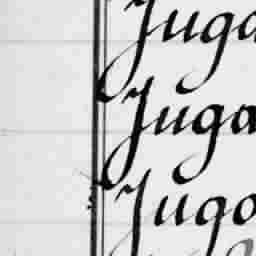 Juga
Juga
Jugo